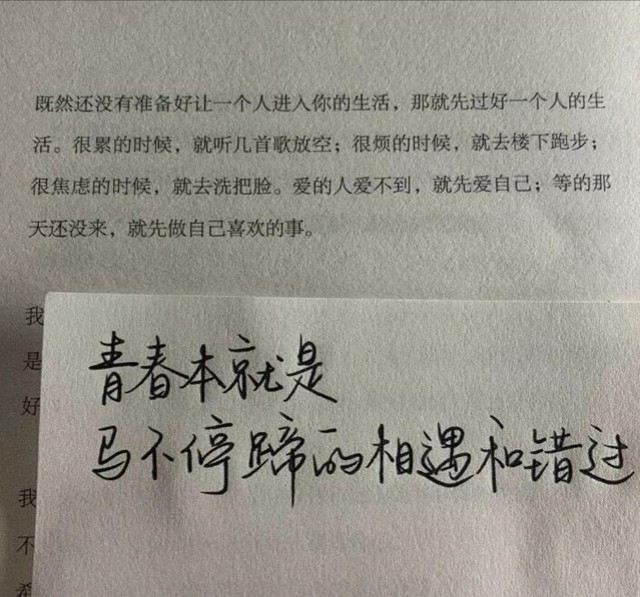 既然还没有准备好让一个人进入你的生活，那就先过好一个人的生
活。很累的时候，就听几首歌放空；很烦的时候，就去楼下跑步；
很焦虑的时候，就去洗把脸。爱的人爱不到，就先爱自己；等的那
天还没来，就先做自己喜欢的事。
我
是
好
青春本就是
马不停蹄的相遇和错过
我
不